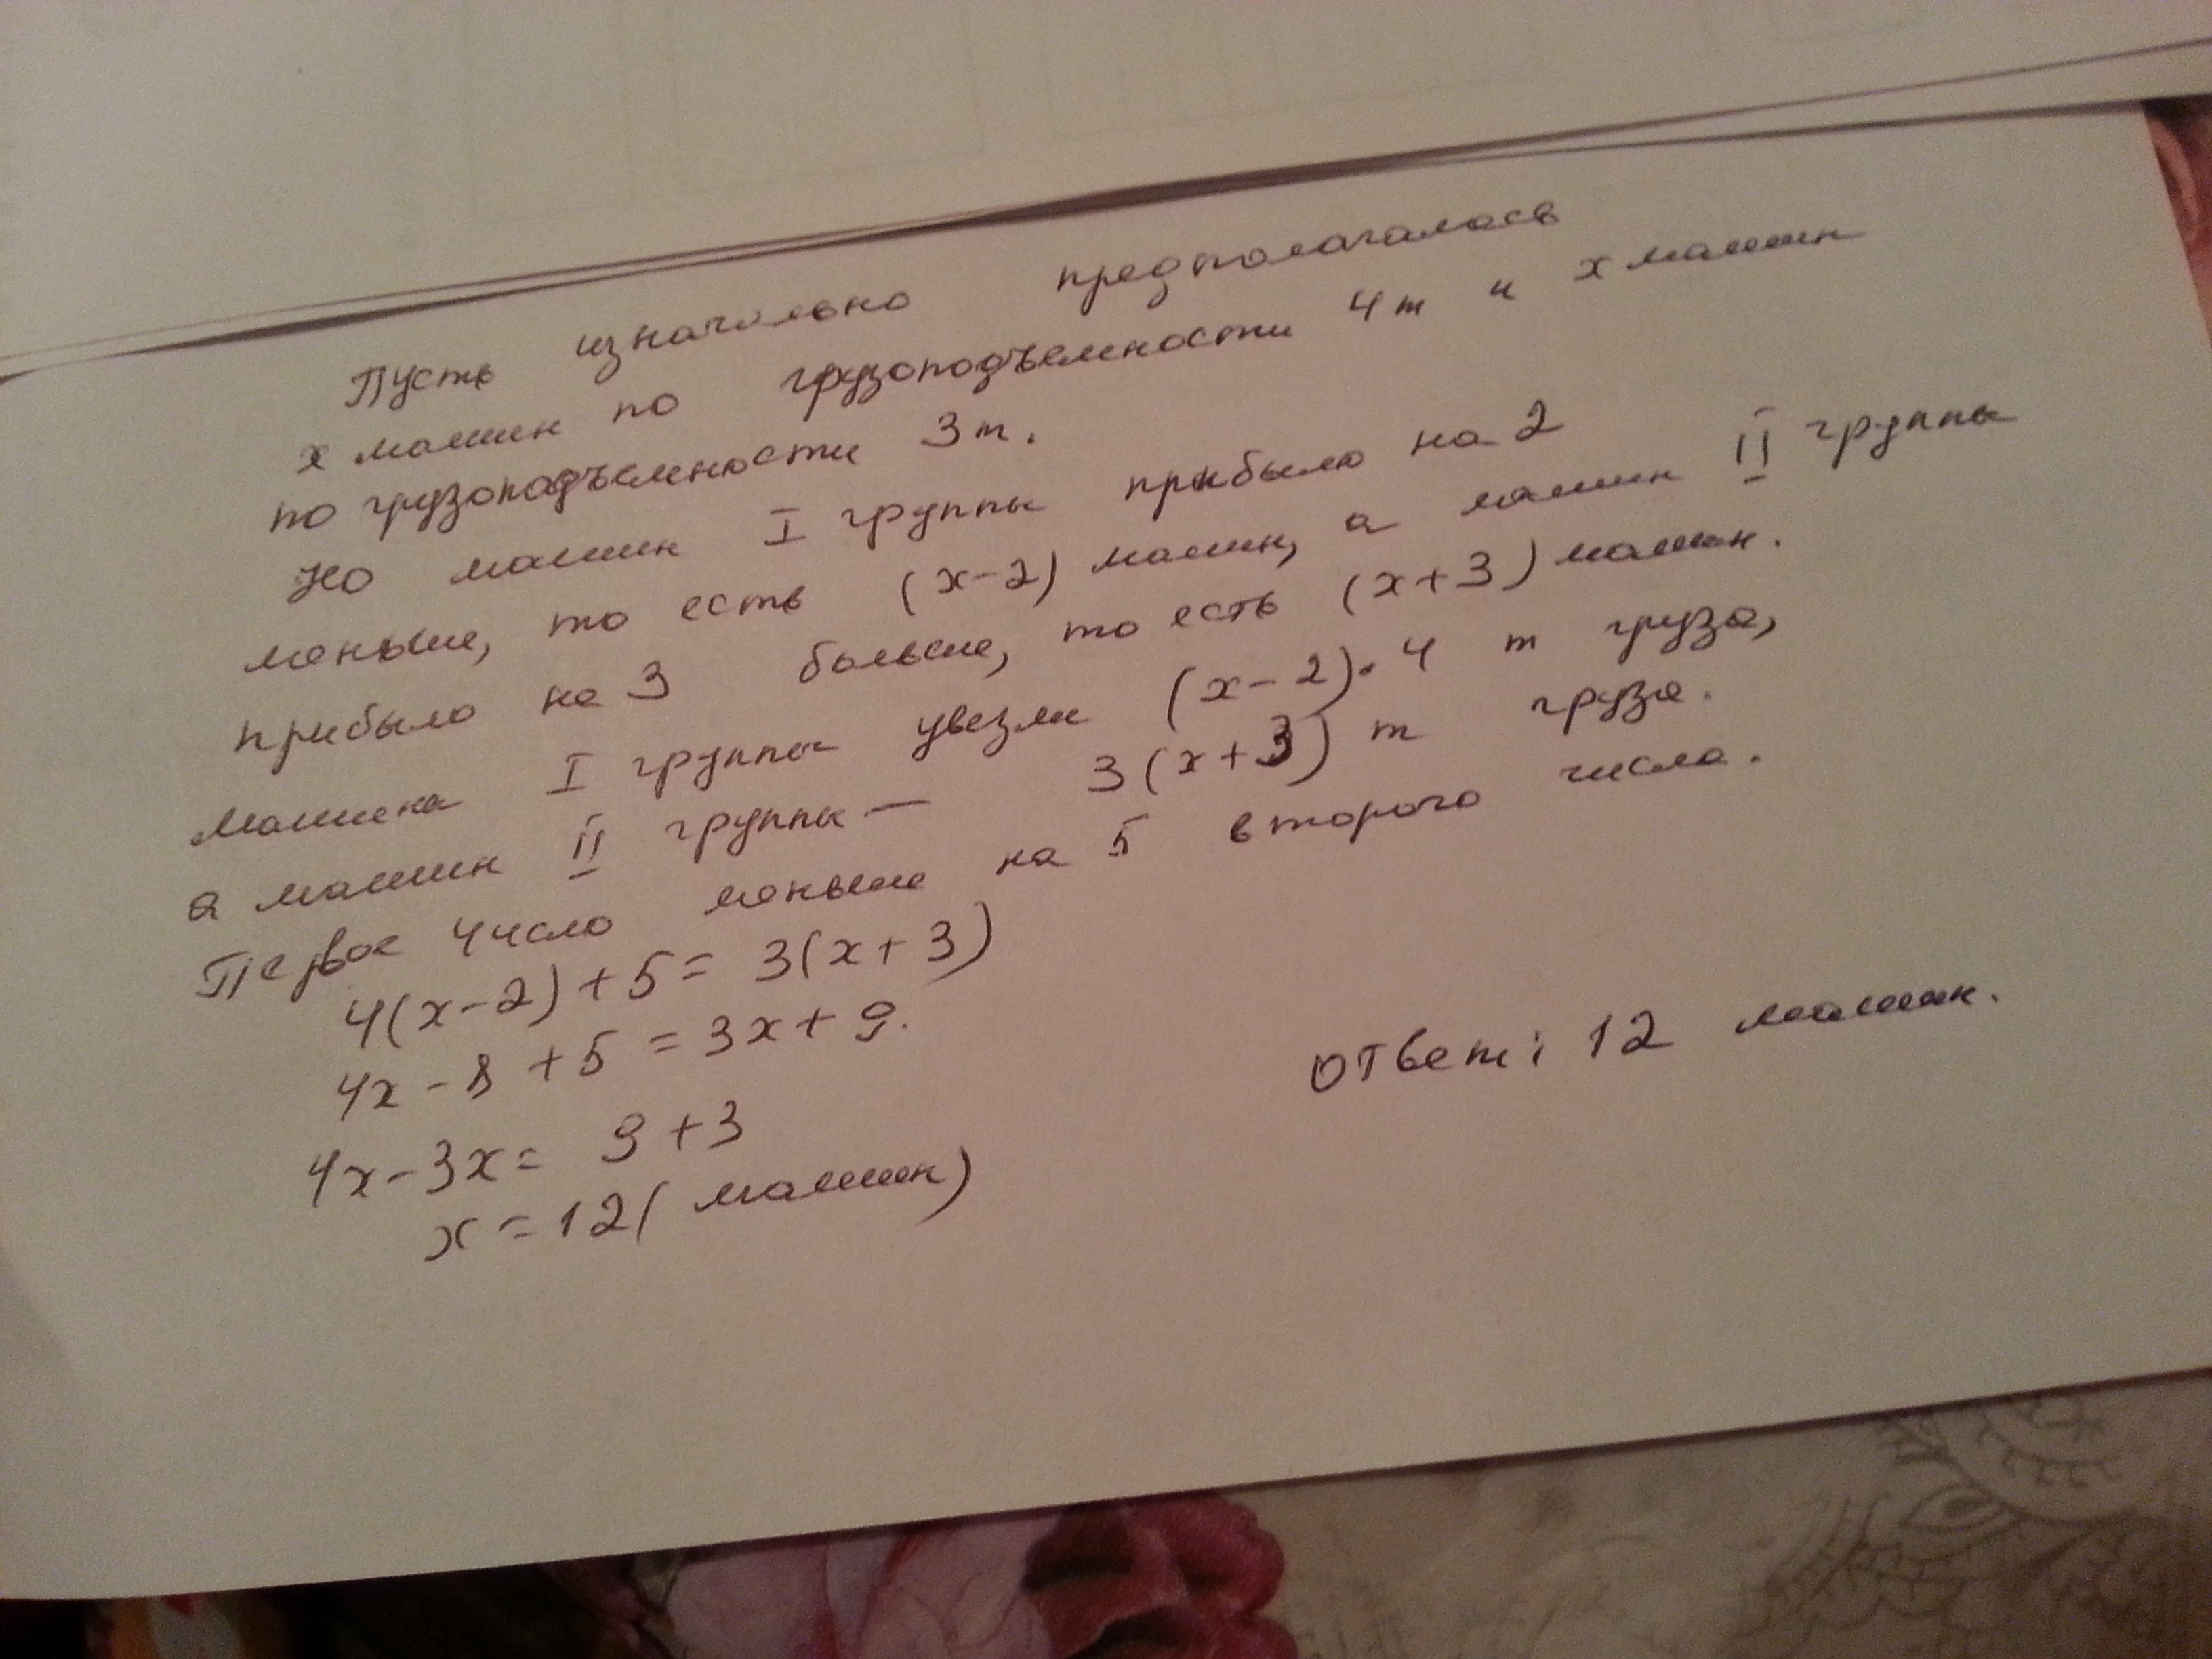 Пусть изначально предполагалось
x машин по грузоподъемности 4т и x машин
по грузоподъемности 3т.
Но машин I группы прибыло на 2
меньше, то есть (x-2) машин, а машин II группы
прибыло на 3 больше, то есть (x+3) машин.
Машина I группы увезли (x-2)·4 т груза,
а машин II группы — 3(x+3) т груза.
Первое число меньше на 5 второго числа.
4(x-2)+5= 3(x+3)
4x-8+5=3x+9.
4x-3x= 9+3
x=12(машин)
Ответ: 12 машин.